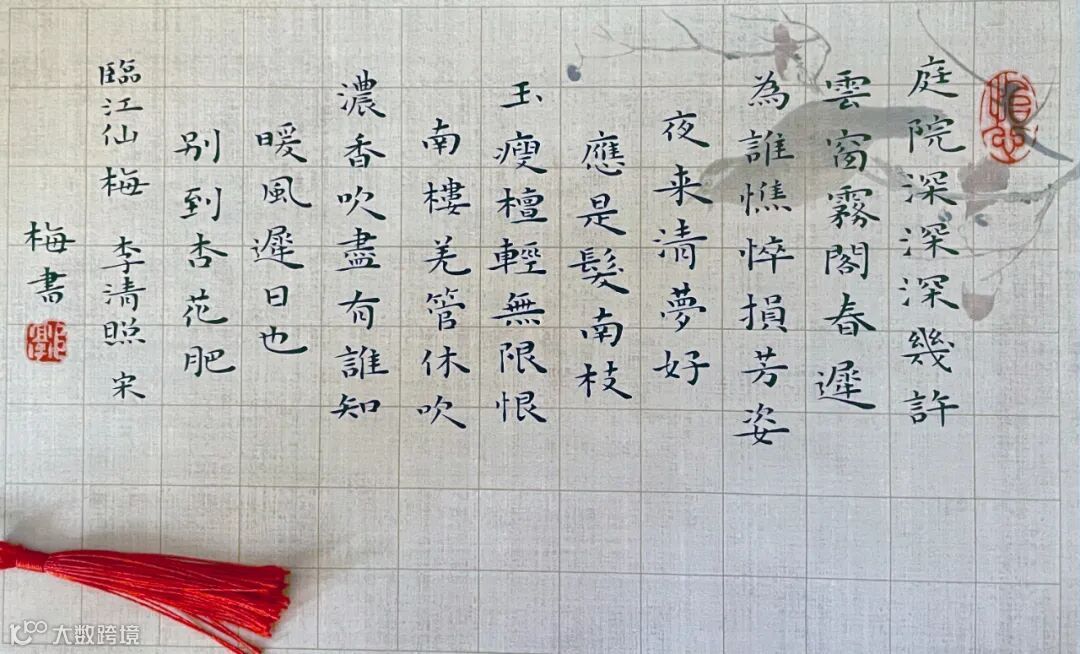 庭院深深深幾許
雲窗霧閣春遲
為誰憔悴損芳姿
夜来清夢好
應是髮南枝
玉瘦檀輕無限恨
南樓羌管休吹
濃香吹盡有誰知
暖風遲日也
别到杏花肥
臨江仙 梅 李清照 宋
梅書
大数跨境